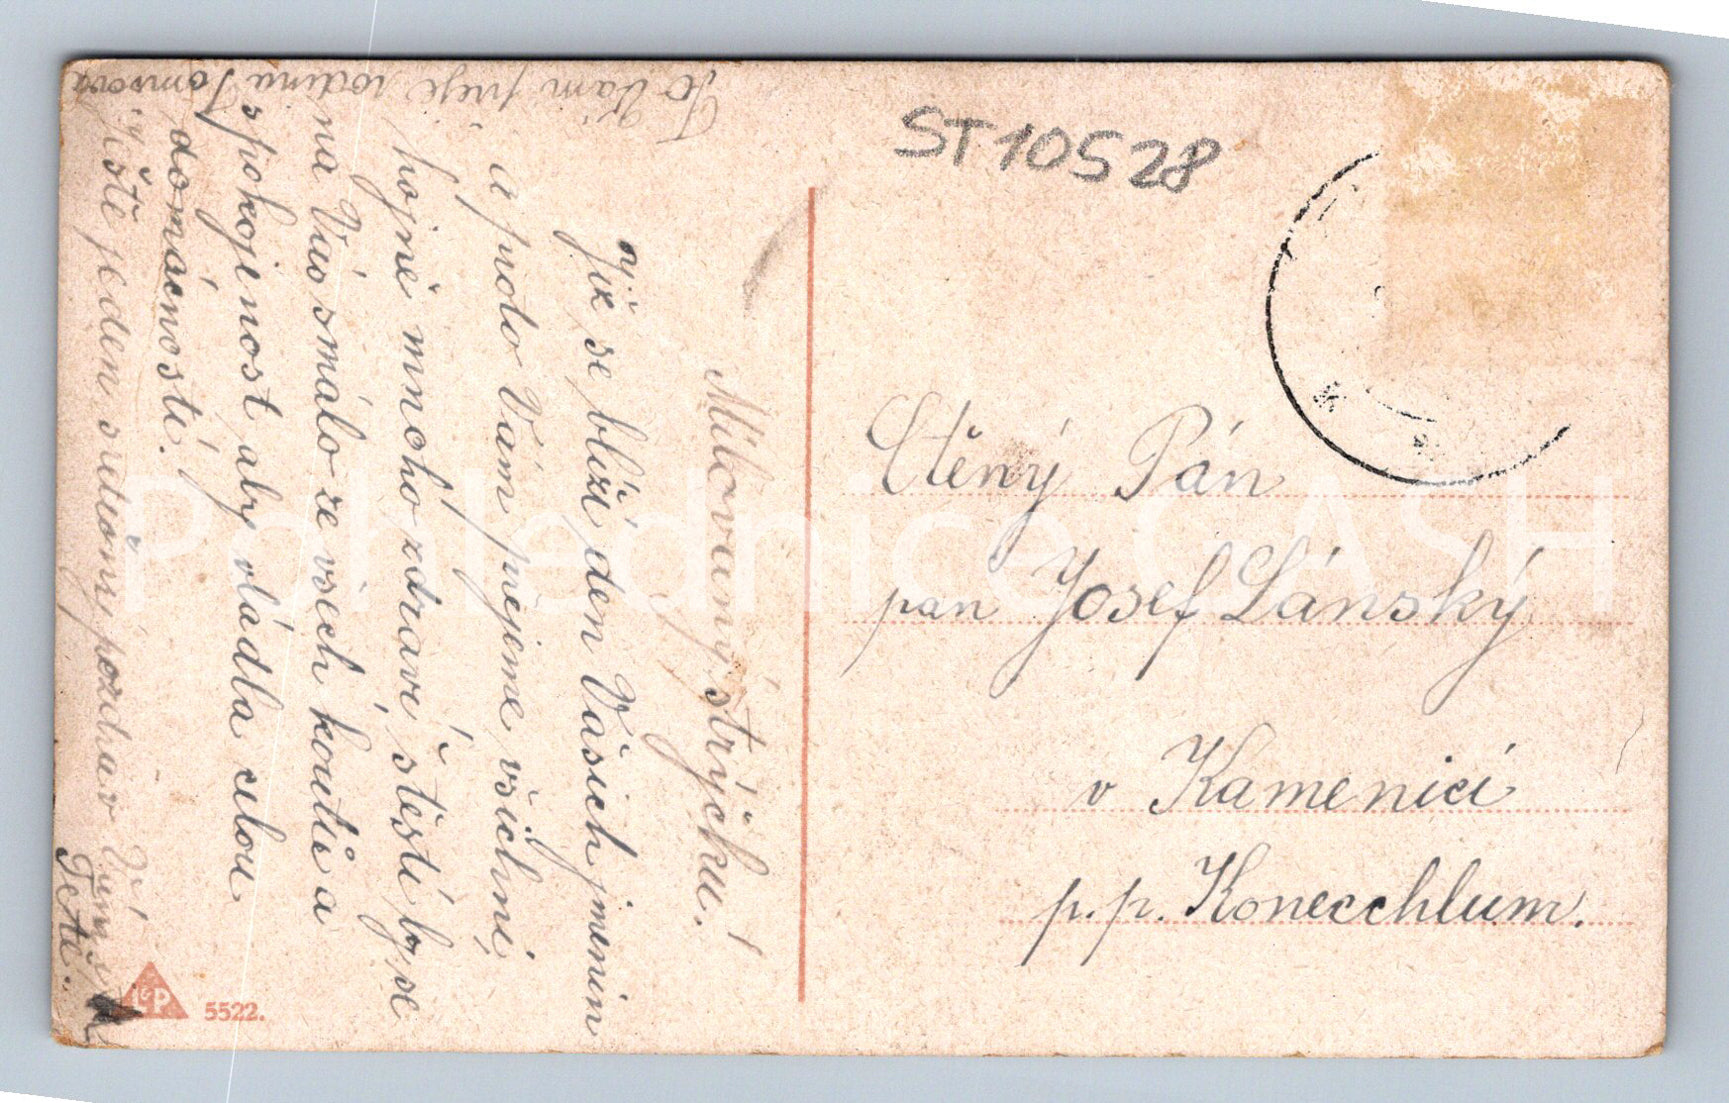 ST10528
Milovaný strýčku!
Již se blíží den Vašich jmenin
a proto Vám přejeme všichni
hojně mnoho zdraví, štěstí by se
na Vás smálo ze všech koutů a
spokojenost aby vládla celou
domácností.
Ještě jeden srdečný pozdrav Vám i
Tetě.
To Vám přeje rodina Tomsova
Ctěný Pán
pan Josef Lánský
v Kamenici
p. p. Konecchlum.
L&P
5522.
Pohlednice GASH